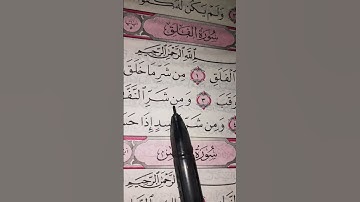 وَلَمْ يَكُن لَّهُ
سُورَةُ الْفَلَقِ
اللَّهِ الرَّحْمَٰنِ الرَّحِيمِ
الْفَلَقِ ١ مِن شَرِّ مَا خَلَقَ
وَقَبَ ٣ وَمِن شَرِّ
وَمِن شَرِّ إِذَا
سُورَةُ
الرَّحْمَٰنِ الرَّحِيمِ